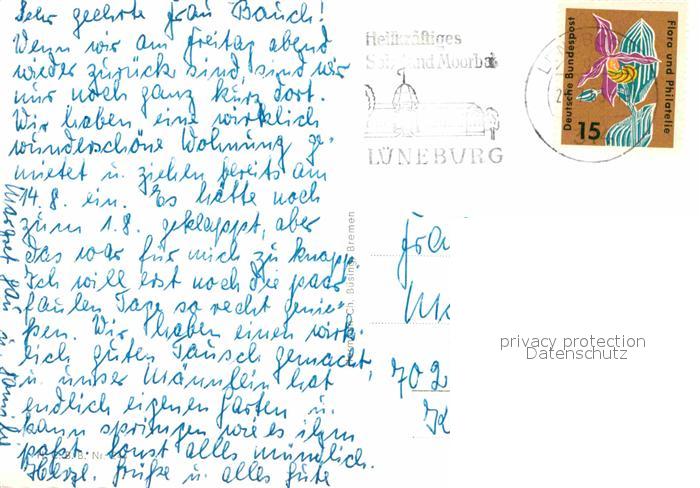 Sehr geehrte Frau Bauch!
Wenn wir am Freitag abend
wieder zurück sind, sind wir
nur noch ganz kurz dort.
Wir haben eine wirklich
wunderschöne Wohnung ge-
mietet u. ziehen bereits am
14.8. ein. Es hätte noch
zum 1.8. geklappt, aber
das war für mich zu knapp.
Ich will erst noch die paar
faulen Tage so recht genie-
ßen. Wir haben einen wirk-
lich guten Tausch gemacht,
u. unser Männlein hat
endlich eigenen Garten u.
kann springen wie es ihm
paßt. Sonst alles mündlich.
Herzl. Grüße u. alles Gute
Margret
Heilkräftiges
Sol- und Moorbad
LÜNEBURG
Deutsche Bundespost
15
Flora und Philatelie
Ch. Büsing, Bremen
Fra
702
privacy protection
Datenschutz